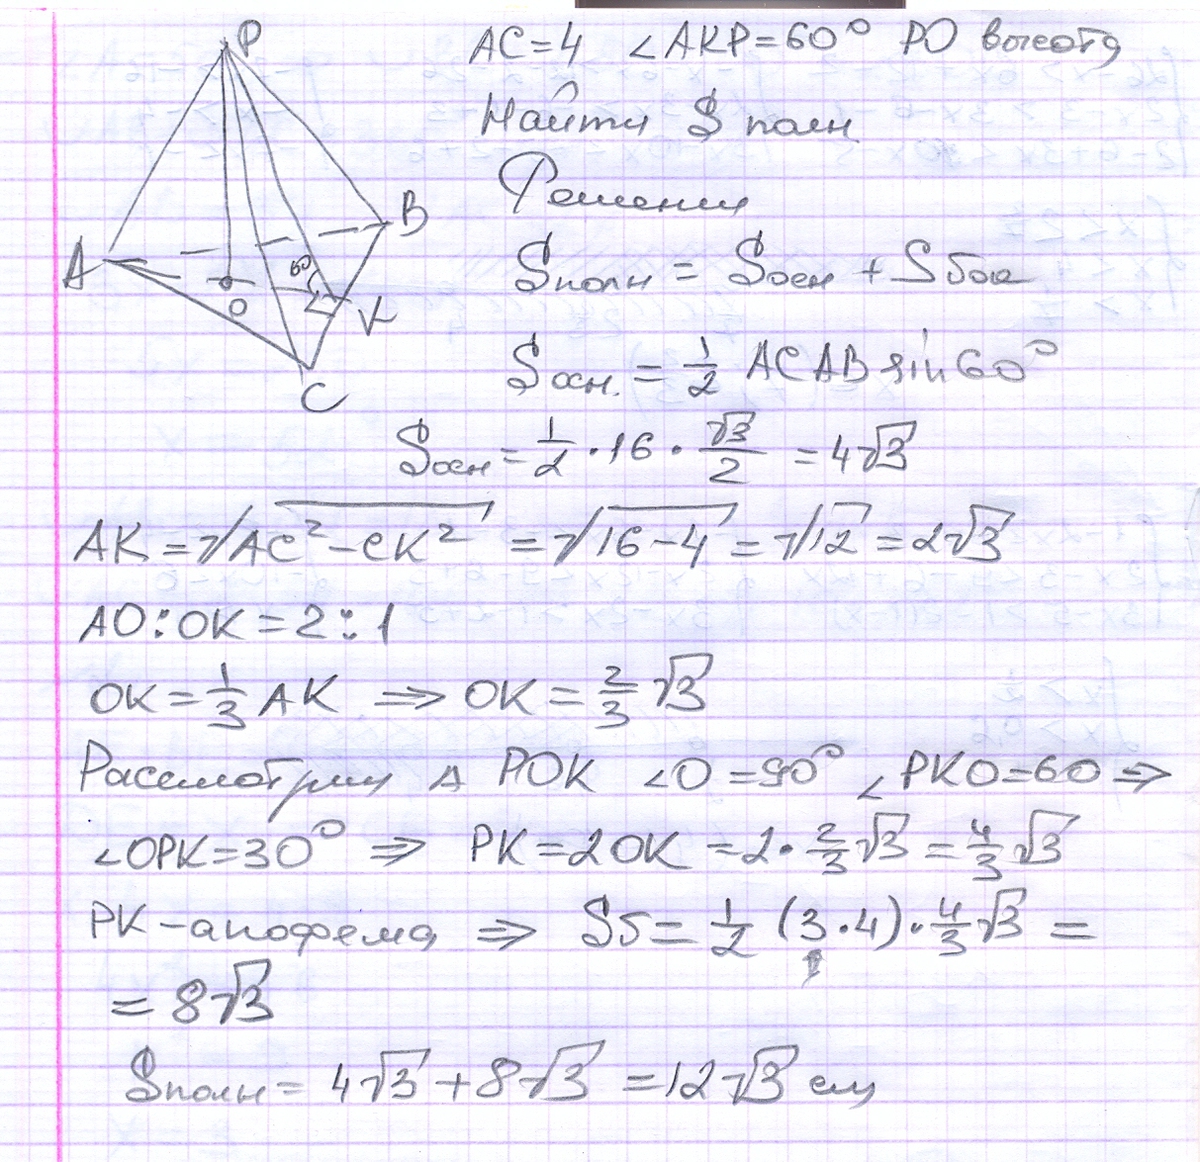 P
A
B
C
O
K
60
AC=4 ∠AKP=60° PO высота
Найти S полн
Решении
Sполн = Sосн + Sбок
Sосн. = 1/2 ACAB sin60°
Sосн = 1/2 · 16 · √3/2 = 4√3
AK = √AC² - CK² = √16-4 = √12 = 2√3
AO:OK = 2:1
OK = 1/3 AK ⇒ OK = 2/3 √3
Рассмотрим Δ POK ∠O = 90° ∠PKO=60 ⇒
∠OPK=30° ⇒ PK=2OK = 2·2/3√3 = 4/3√3
PK-апофема ⇒ Sб = 1/2 (3·4)·4/3√3 =
= 8√3
Sполн = 4√3 + 8√3 = 12√3 см